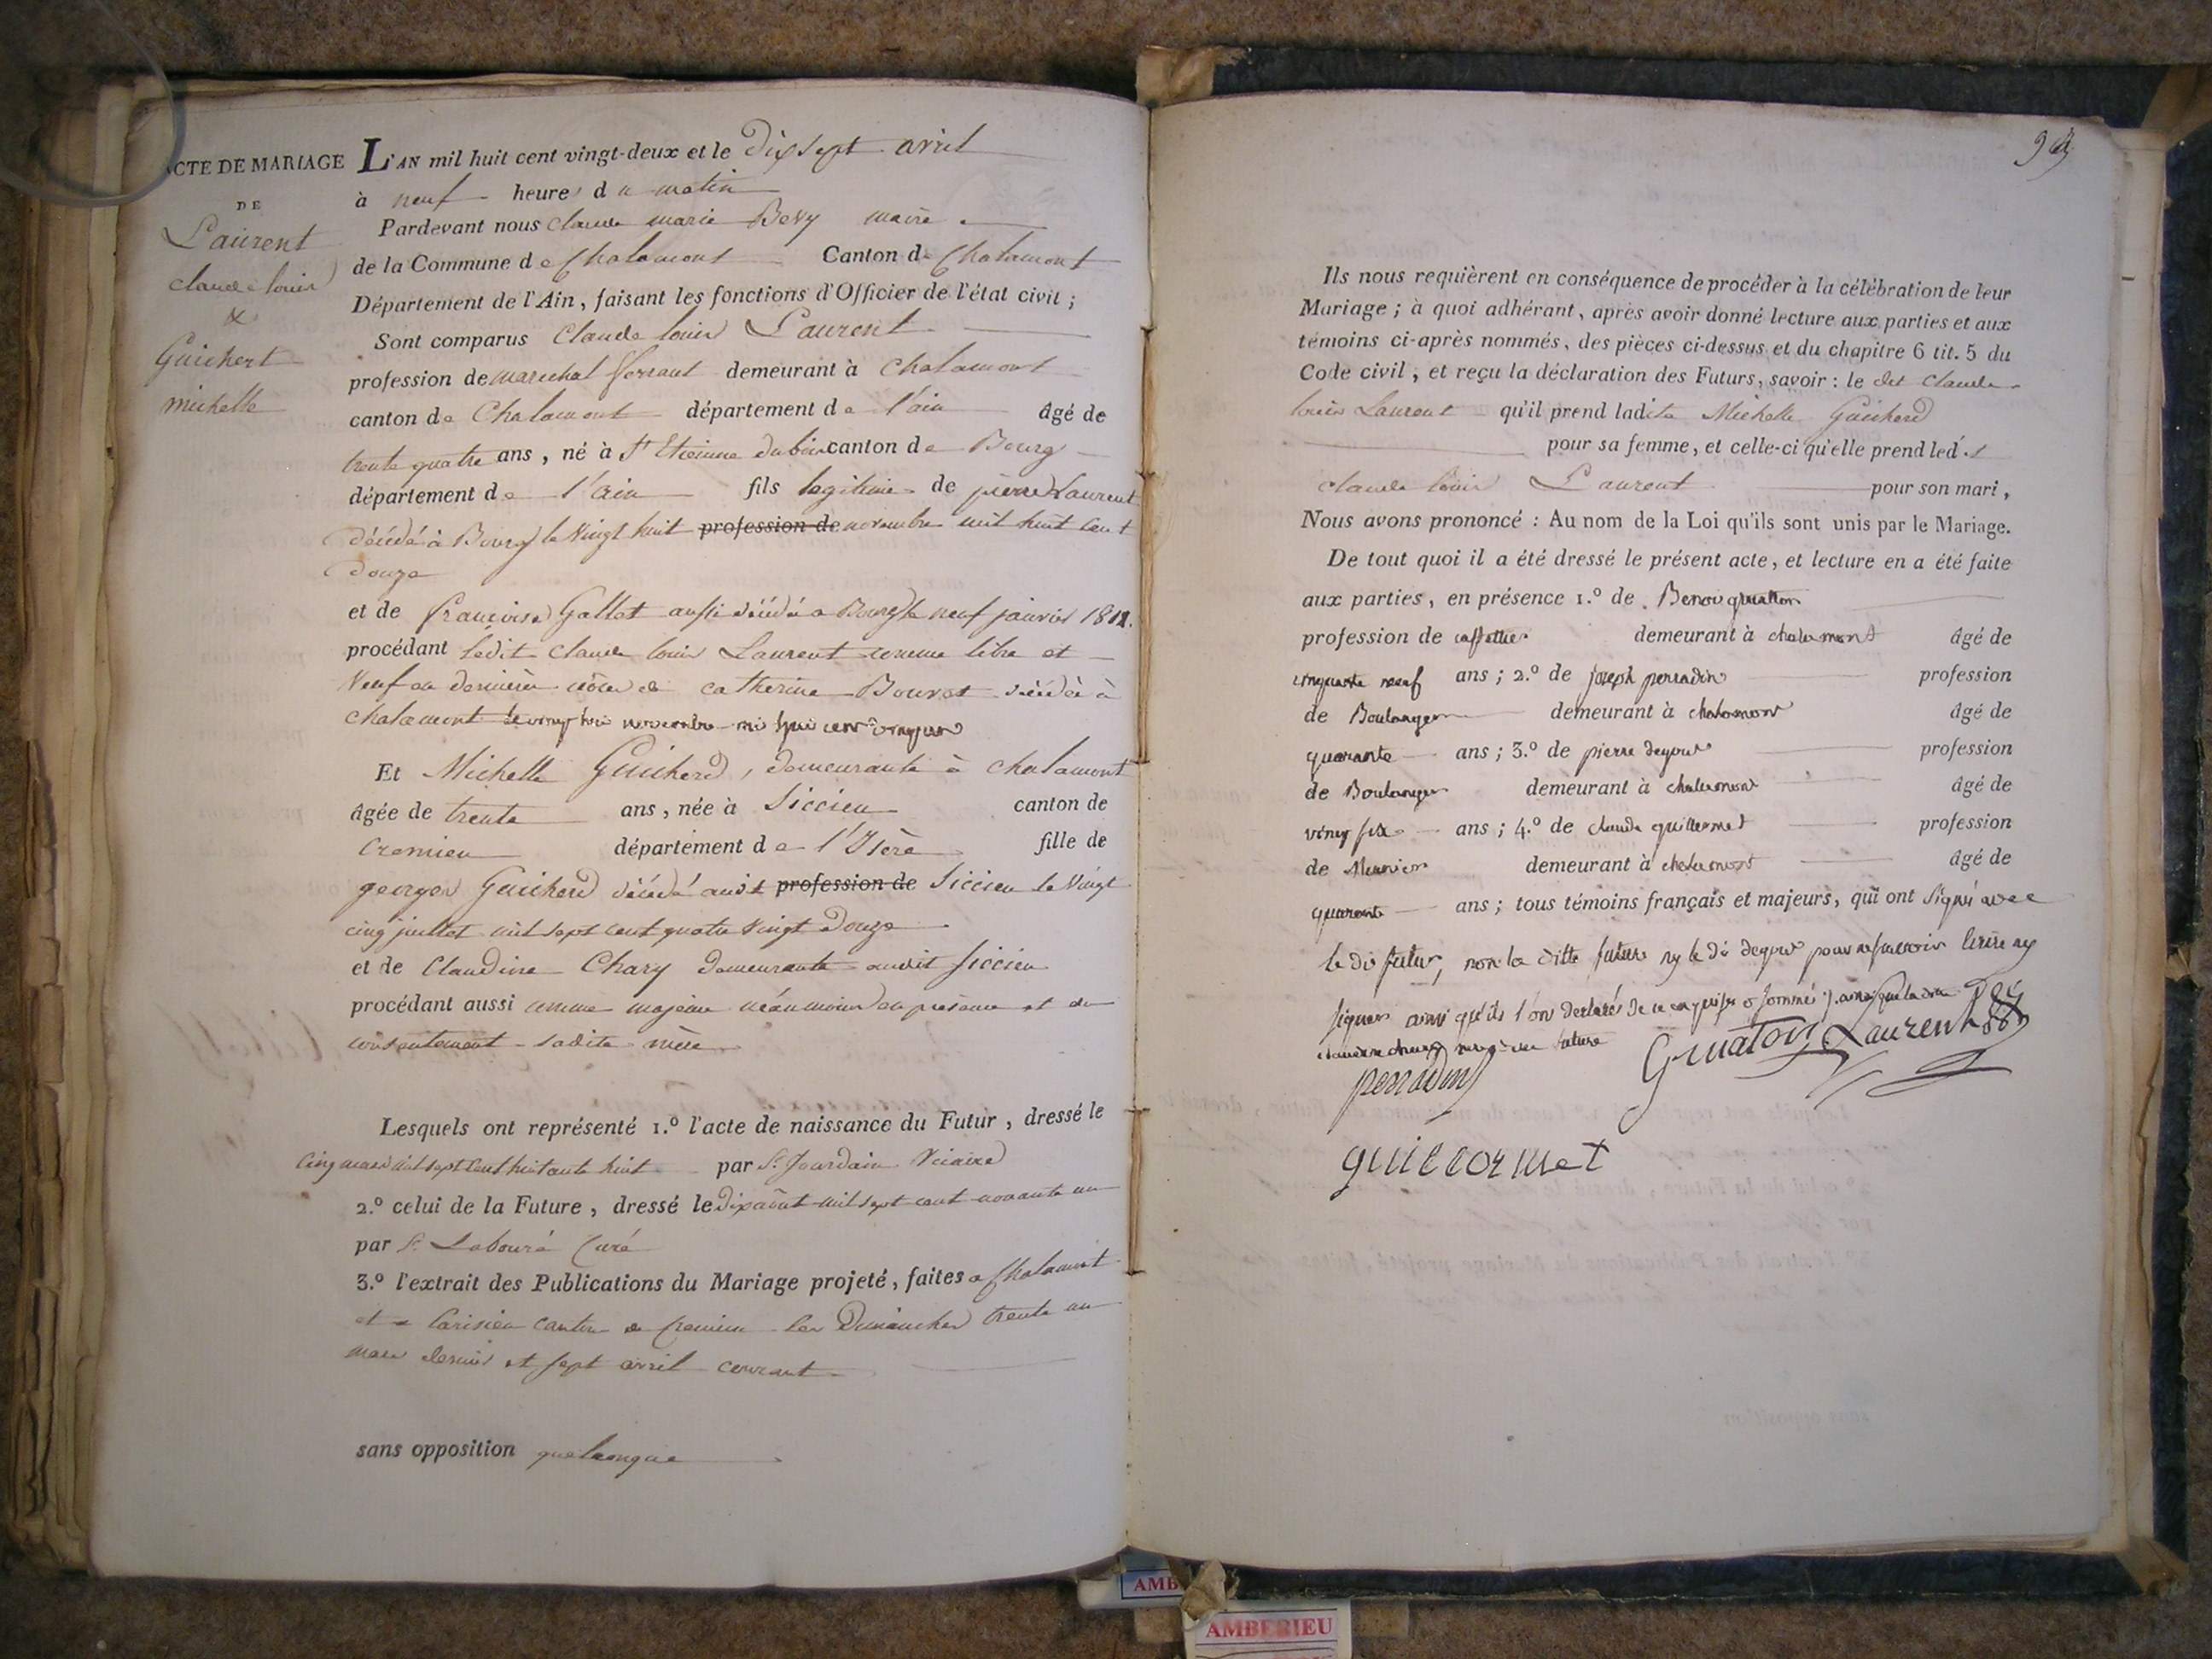 ACTE DE MARIAGE
DE
Laurent
claude louis
&
Guichert
michelle
L'AN mil huit cent vingt-deux et le Dix sept avril
à neuf heures du matin
Pardevant nous claude marie Bevy maire
de la Commune de Chalamont Canton de Chalamont
Département de l'Ain, faisant les fonctions d'Officier de l'état civil ;
Sont comparus Claude louis Laurent
profession de marechal ferrant demeurant à Chalamont
canton de Chalamont département de l'ain âgé de
trente quatre ans, né à St Etienne du bois canton de Bourg
département de l'ain fils legitime de pierre Laurent
décédé à Bourg le Vingt huit profession de novembre mil huit cent
Douze
et de françoise Gallet aussi décédée a Bourg le neuf janvier
procédant ledit claude louis Laurent comme libre et
Veuf en dernière nôce de catherine Bouvet décédée à
chalamont le
Et Michelle Guicherd, demeurante à chalamont
âgée de trente ans, née à Siccieu canton de
Cremieu département de l'Isère fille de
georges Guicherd décédé audit profession de Siccieu le Vingt
cinq juillet mil sept cent quatre vingt Douze
et de Claudine Chary demeurante audit Siccieu
procédant aussi comme majeure néanmoins en présence et du
consentement sadite mère
Lesquels ont représenté 1.º l'acte de naissance du Futur, dressé le
cinq mars mil sept cent huitante huit par Sr Jourdain Vicaire
2.º celui de la Future, dressé le Dix août mil sept cent nonante un
par Sr Labouré Curé
3.º l'extrait des Publications du Mariage projeté, faites a Chalamont
et a canton de Cremieu les Dimanches trente un
mars dernier et sept avril courant
sans opposition quelconque
Ils nous requièrent en conséquence de procéder à la célébration de leur
Mariage ; à quoi adhérant, après avoir donné lecture aux parties et aux
témoins ci-après nommés, des pièces ci-dessus et du chapitre 6 tit. 5 du
Code civil, et reçu la déclaration des Futurs, savoir : le dit Claude
louis Laurent qu'il prend ladite Michelle Guicherd
pour sa femme, et celle-ci qu'elle prend led.t
claude louis Laurent pour son mari,
Nous avons prononcé : Au nom de la Loi qu'ils sont unis par le Mariage.
De tout quoi il a été dressé le présent acte, et lecture en a été faite
aux parties, en présence 1.º de Benoi
profession de demeurant à chalamont âgé de
cinquante neuf ans ; 2.º de joseph perradin profession
de Boulanger demeurant à chalamont âgé de
quarante ans ; 3.º de pierre degout profession
de Boulanger demeurant à chalamont âgé de
vingt six ans ; 4.º de claude guillermet profession
de Meunier demeurant à chalamont âgé de
quarante ans ; tous témoins français et majeurs, qui ont signé avec
le di futur, non la ditte future ny le di degout pour ne savoir lirire ny
signer ainsi qu'ils l'on declarés de ce enquis &
future
perradin
Guaton Laurent
guillermet
AMBERIEU